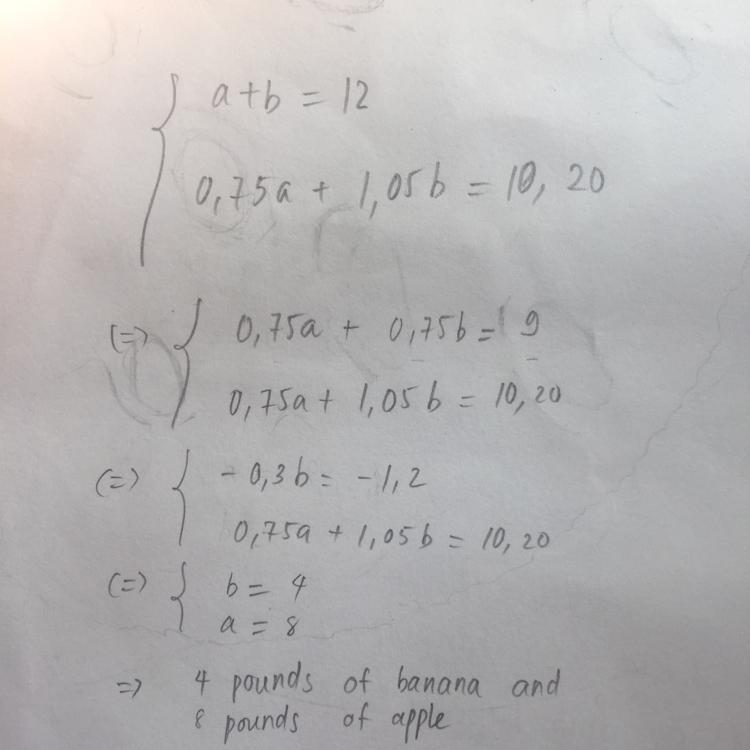 a+b = 12
0,75a + 1,05b = 10, 20
(=) 0,75a + 0,75b = 9
0,75a + 1,05b = 10,20
(=) -0,3b = -1,2
0,75a + 1,05b = 10,20
(=) b = 4
a = 8
=> 4 pounds of banana and
8 pounds of apple